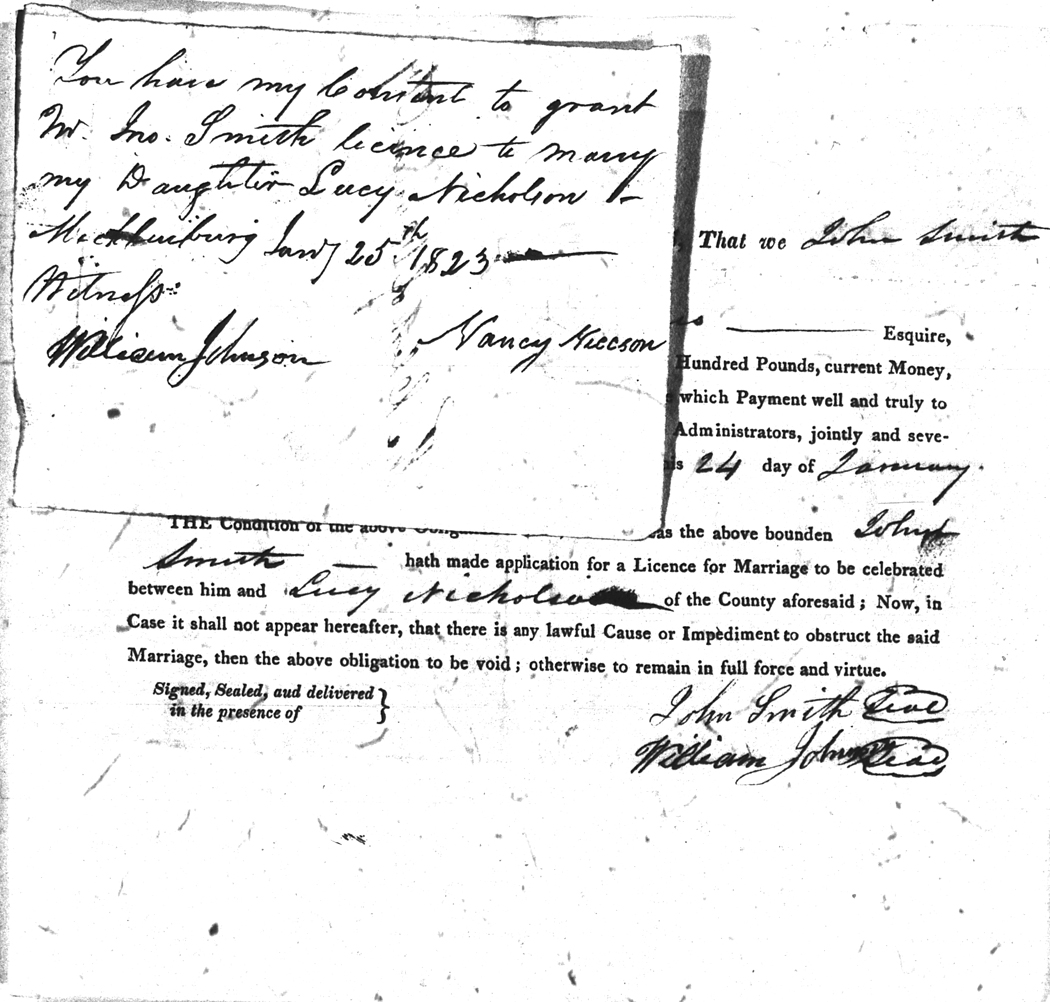 You have my Consent to grant
Mr. Jno. Smith licence to marry
my Daughter Lucy Nicholson
Mecklinburg Jany 25th 1823
Witness:
William Johnson Nancy Niccson
That we John Smith
Esquire,
Hundred Pounds, current Money,
which Payment well and truly to
Administrators, jointly and seve-
is 24 day of January.
THE Condition of the above Oblig as the above bounden John
Smith hath made application for a Licence for Marriage to be celebrated
between him and Lucy Nicholson of the County aforesaid; Now, in
Case it shall not appear hereafter, that there is any lawful Cause or Impediment to obstruct the said
Marriage, then the above obligation to be void; otherwise to remain in full force and virtue.
Signed, Sealed, aud delivered }
in the presence of
John Smith Seal
William Johnson Seal